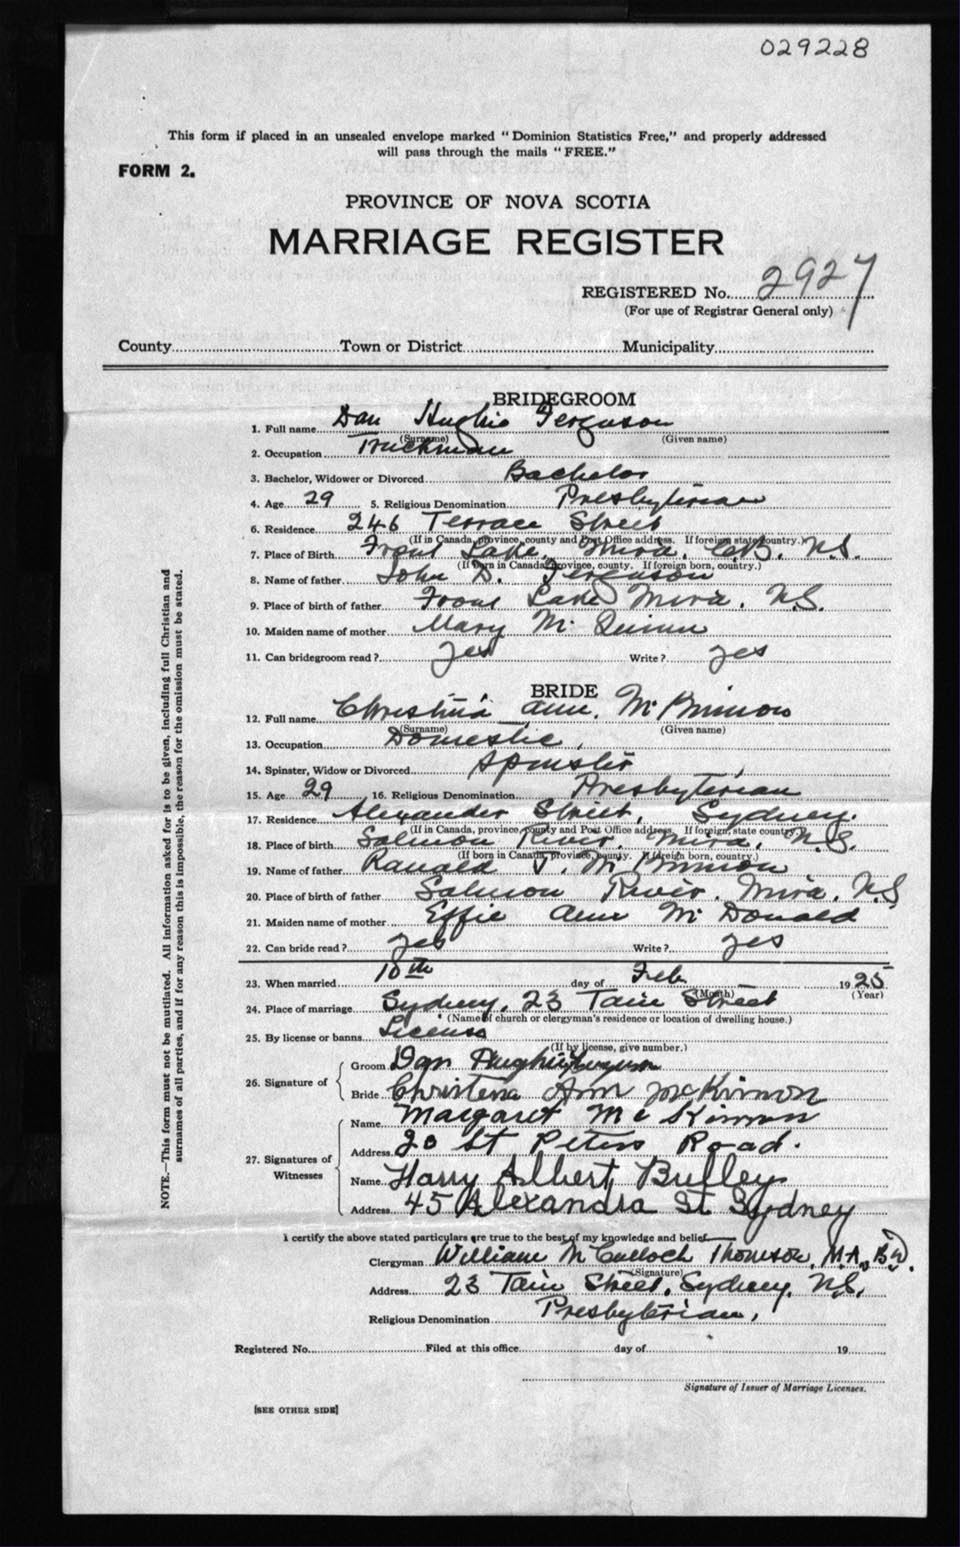 029228
This form if placed in an unsealed envelope marked "Dominion Statistics Free," and properly addressed
will pass through the mails "FREE."
FORM 2.
PROVINCE OF NOVA SCOTIA
MARRIAGE REGISTER
REGISTERED No. 2927
(For use of Registrar General only)
County Town or District Municipality
BRIDEGROOM
1. Full name Dan Hughie Ferguson
(Surname) (Given name)
2. Occupation Truckman
3. Bachelor, Widower or Divorced Bachelor
4. Age 29 5. Religious Denomination Presbyterian
6. Residence 246 Terrace Street
(If in Canada, province, county and Post Office address. If foreign state country.)
7. Place of Birth Trout Lake, Mira, C.B. N.S.
(If born in Canada, province, county. If foreign born, country.)
8. Name of father John D. Ferguson
9. Place of birth of father Trout Lake Mira, N.S.
10. Maiden name of mother Mary McQuinn
11. Can bridegroom read? yes Write? yes
BRIDE
12. Full name Christina Ann, McKinnon
(Surname) (Given name)
13. Occupation Domestic,
14. Spinster, Widow or Divorced Spinster
15. Age 29 16. Religious Denomination Presbyterian
17. Residence Alexander Street, Sydney.
(If in Canada, province, county and Post Office address. If foreign, state country.)
18. Place of birth Salmon River, Mira, N.S.
(If born in Canada, province, county. If foreign born, country.)
19. Name of father Ranald J. McKinnon
20. Place of birth of father Salmon River, Mira, N.S
21. Maiden name of mother Effie Ann McDonald
22. Can bride read? yes Write? yes
23. When married 10th day of Feb 1925
(Month) (Year)
24. Place of marriage Sydney, 23 Tain Street
(Name of church or clergyman's residence or location of dwelling house.)
25. By license or banns License
(If by license, give number.)
26. Signature of Groom Dan Hughie Ferguson
Bride Christena Ann McKinnon
27. Signatures of Witnesses Name Margaret McKinnon
Address 20 St Peters Road.
Name Harry Albert Bulley
Address 45 Alexandra St Sydney
I certify the above stated particulars are true to the best of my knowledge and belief.
Clergyman William McCulloch Thomson, M.A., B.D.
(Signature)
Address 23 Tain Street, Sydney, N.S.
Religious Denomination Presbyterian,
Registered No. Filed at this office day of 19
Signature of Issuer of Marriage Licenses.
[SEE OTHER SIDE]
NOTE.—This form must not be mutilated. All information asked for is to be given, including full Christian and
surnames of all parties, and if for any reason this is impossible, the reason for the omission must be stated.